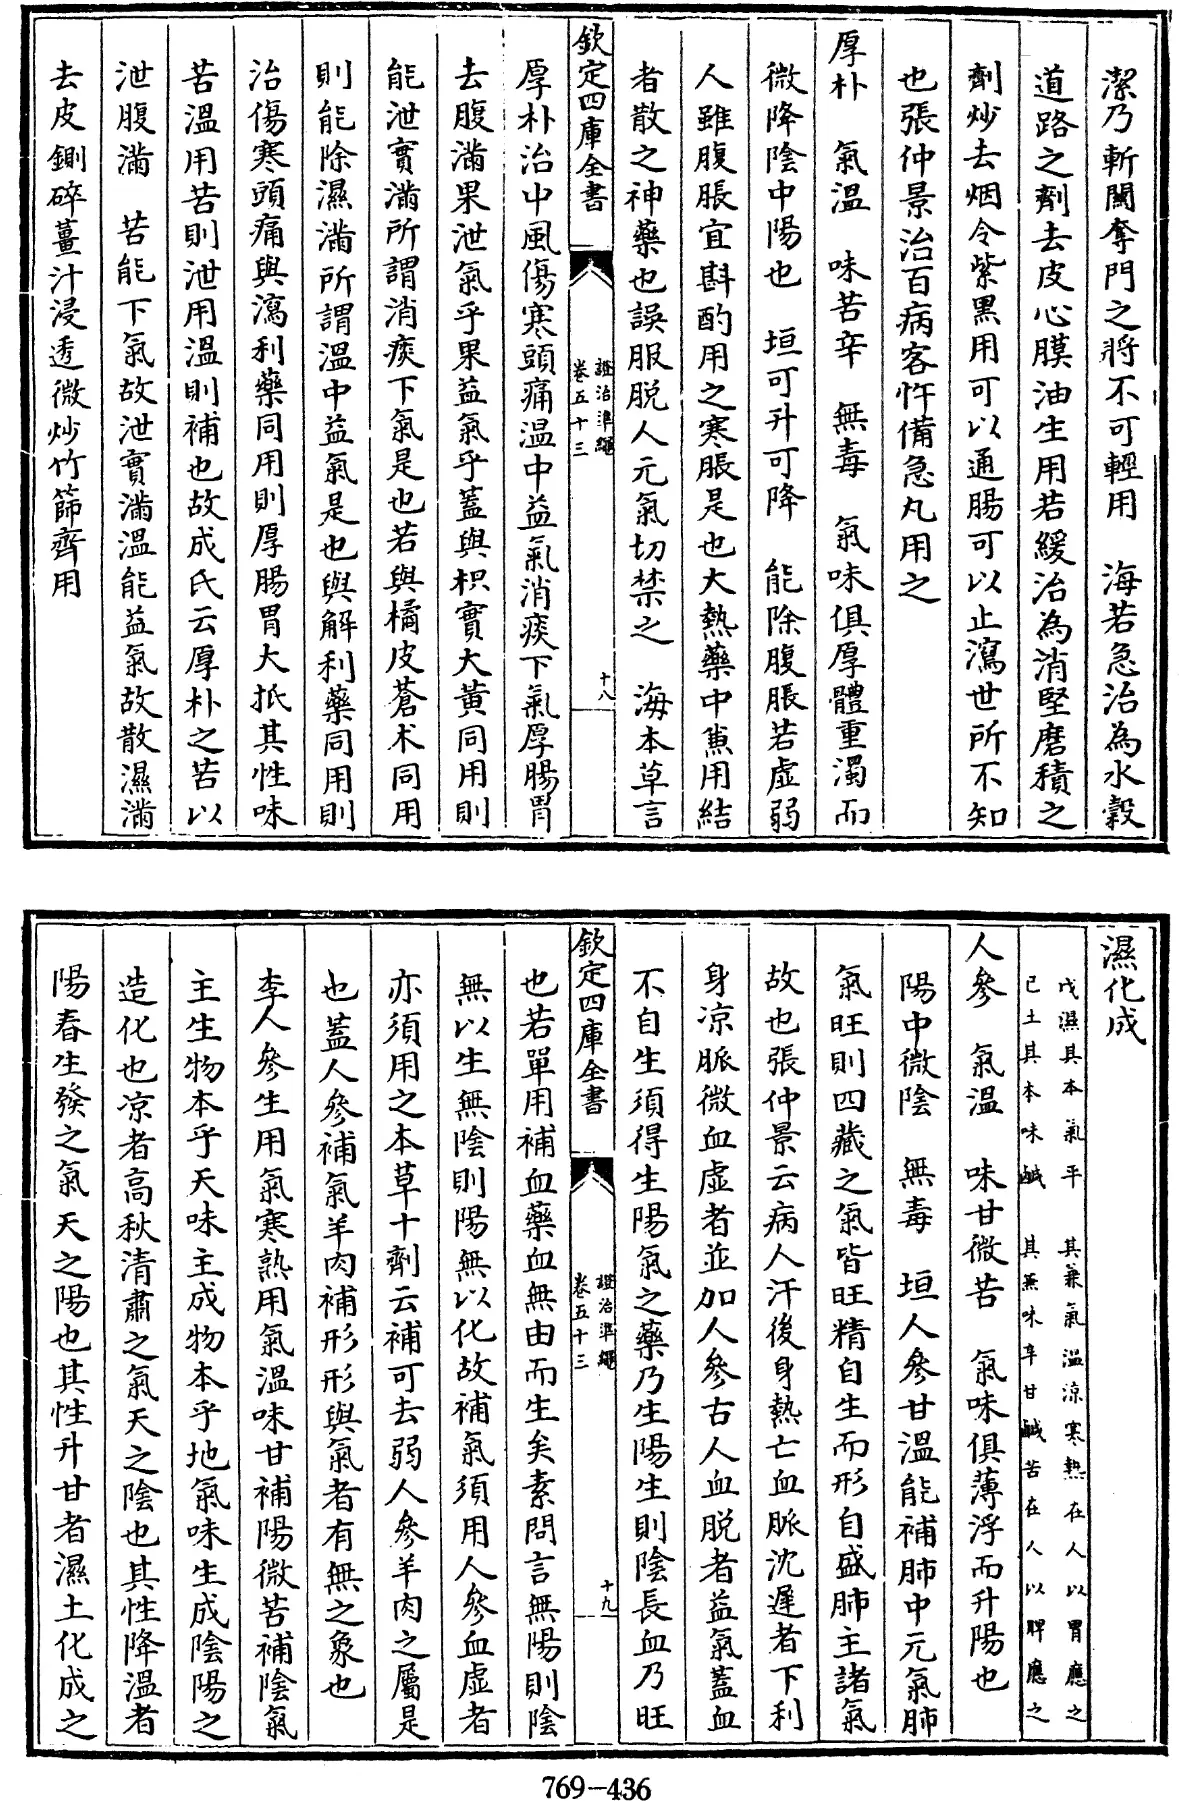 潔乃斬關奪門之將不可輕用　海若急治為水穀
道路之劑去皮心膜油生用若緩治為消堅磨積之
劑炒去烟令紫黑用可以通腸可以止瀉世所不知
也張仲景治百病客忤備急丸用之
厚朴　氣溫　味苦辛　無毒　氣味俱厚體重濁而
微降陰中陽也　垣可升可降　能除腹脹若虛弱
人雖腹脹宜斟酌用之寒脹是也大熱藥中兼用結
者散之神藥也誤服脫人元氣切禁之　海本草言
欽定四庫全書
證治準繩
卷五十三
十八
厚朴治中風傷寒頭痛溫中益氣消痰下氣厚腸胃
去腹滿果泄氣乎果益氣乎蓋與枳實大黃同用則
能泄實滿所謂消痰下氣是也若與橘皮蒼术同用
則能除濕滿所謂溫中益氣是也與解利藥同用則
治傷寒頭痛與瀉利藥同用則厚腸胃大抵其性味
苦溫用苦則泄用溫則補也故成氏云厚朴之苦以
泄腹滿　苦能下氣故泄實滿溫能益氣故散濕滿
去皮鍘碎薑汁浸透微炒竹篩齊用
濕化成
戊濕其本氣平　其兼氣溫涼寒熱在人以胃應之
己土其本味鹹　其兼味辛甘鹹苦在人以脾應之
人參　氣溫　味甘微苦　氣味俱薄浮而升陽也
陽中微陰　無毒　垣人參甘溫能補肺中元氣肺
氣旺則四藏之氣皆旺精自生而形自盛肺主諸氣
故也張仲景云病人汗後身熱亡血脈沈遲者下利
身凉脈微血虛者並加人參古人血脫者益氣蓋血
不自生須得生陽氣之藥乃生陽生則陰長血乃旺
欽定四庫全書
證治準繩
卷五十三
十九
也若單用補血藥血無由而生矣素問言無陽則陰
無以生無陰則陽無以化故補氣須用人參血虛者
亦須用之本草十劑云補可去弱人參羊肉之屬是
也蓋人參補氣羊肉補形形與氣者有無之象也
李人參生用氣寒熟用氣溫味甘補陽微苦補陰氣
主生物本乎天味主成物本乎地氣味生成陰陽之
造化也凉者高秋清肅之氣天之陰也其性降溫者
陽春生發之氣天之陽也其性升甘者濕土化成之
769-436